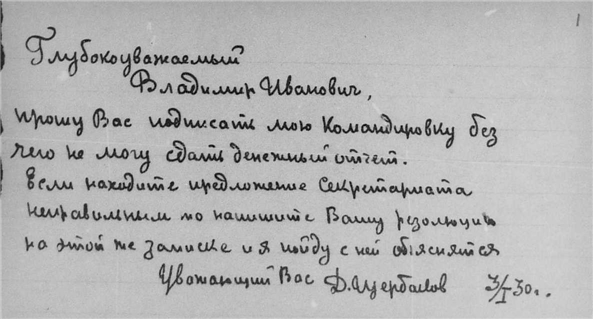 1
Глубокоуважаемый
Владимир Иванович,
прошу Вас подписать мою Командировку без
чего не могу сдать денежный отчет.
Если находите предложение Секретариата
неправильным то напишите Вашу резолюцию
на этой же записке и я пойду с ней объяснятся
Уважающий Вас Д. Щербаков 3/I 30 г.